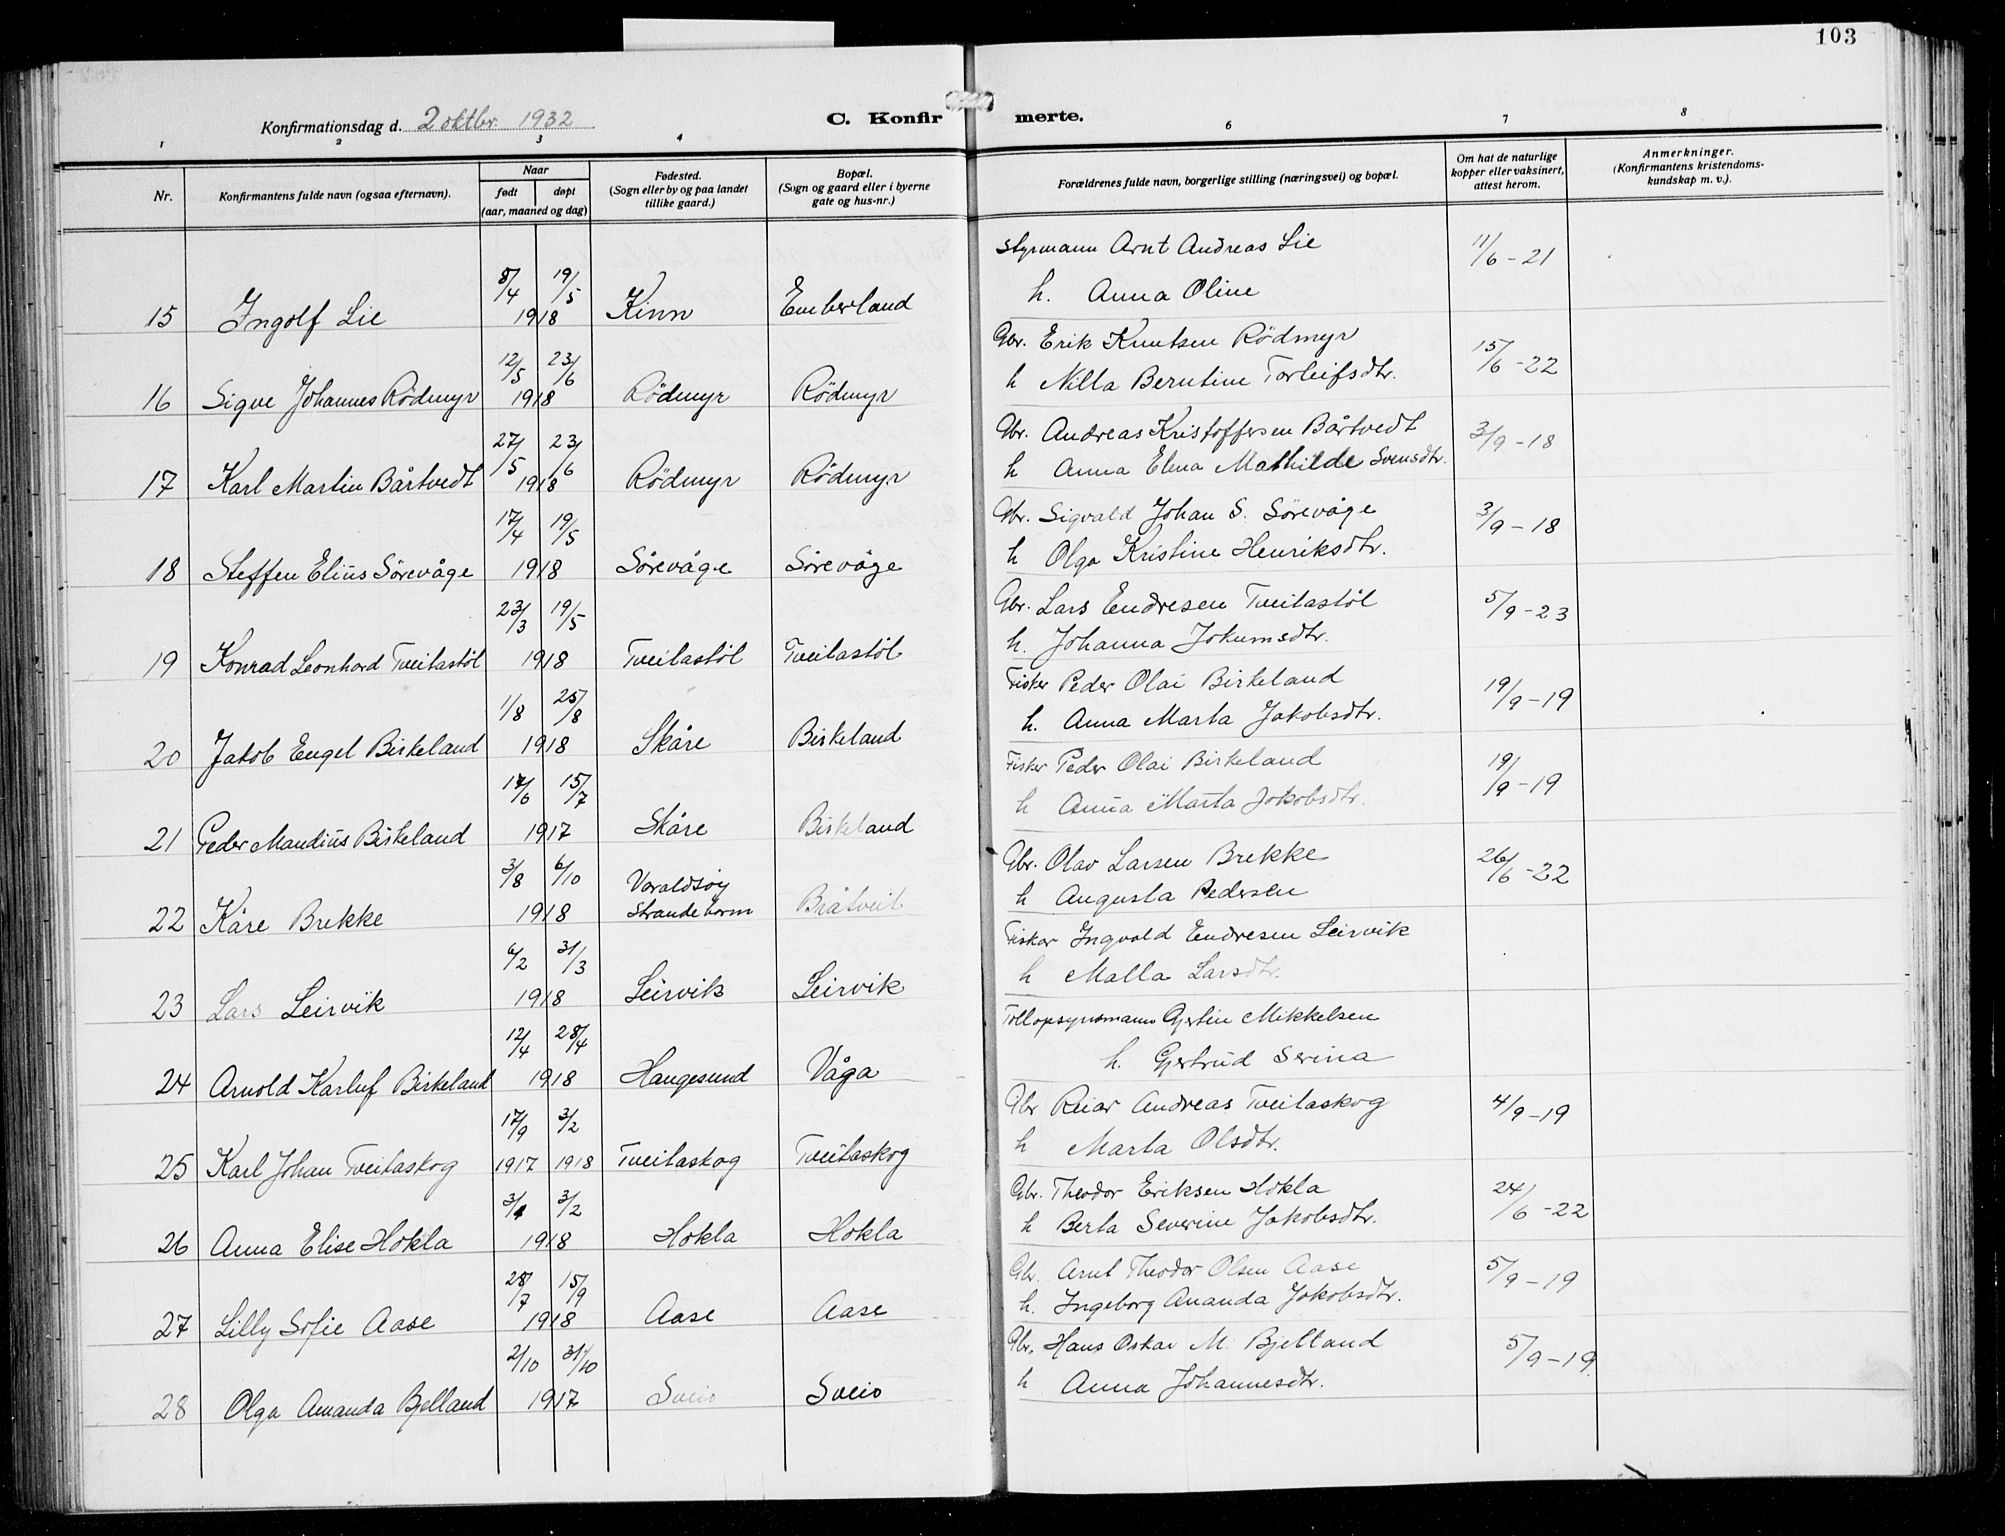 103
Konfirmationsdag d. 2 oktbr. 1932
C. Konfirmerte.
1 2 3 4 6 7 8
Nr.
Konfirmantens fulde navn (ogsaa efternavn).
Naar
født døpt
(aar, maaned og dag)
Fødested.
(Sogn eller by og paa landet
tillike gaard.)
Bopæl.
(Sogn og gaard eller i byerne
gate og hus-nr.)
Forældrenes fulde navn, borgerlige stilling (næringsvei) og bopæl.
Om hat de naturlige
kopper eller vaksinert,
attest herom.
Anmerkninger.
(Konfirmantens kristendoms-
kundskap m. v.).
8/4 19/5 Styrmann Arnt Andreas Lie 11/6 - 21
15 Ingolf Lie 1918 Kinn Emberland h. Anna Oline
12/5 23/6 Gbr. Erik Knutsen Rödmyr 15/6 - 22
16 Sigve Johannes Rödmyr 1918 Rödmyr Rödmyr h Nilla Berntine Torleifsdtr.
27/5 23/6 Gbr. Andreas Kristoffersen Bårtvedt 3/9 - 18
17 Karl Martin Bårtvedt 1918 Rödmyr Rödmyr h Anna Elena Mathilde Svensdtr.
17/4 19/5 Gbr. Sigvald Johan S. Sörevåge 3/9 - 18
18 Steffen Elius Sörevåge 1918 Sörevåge Sörevåge h Olga Kristine Henriksdtr.
23/3 19/5 Gbr. Lars Endresen Tveitastöl 5/9 - 23
19 Konrad Leonhard Tveitastöl 1918 Tveitastöl Tveitastöl h. Johanna Jokumsdtr.
1/8 25/8 Fisker Peder Olai Birkeland 19/9 - 19
20 Jakob Engel Birkeland 1918 Skåre Birkeland h. Anna Marta Jakobsdtr.
17/6 15/7 Fisker Peder Olai Birkeland 19/9 - 19
21 Peder Mandius Birkeland 1917 Skåre Birkeland h Anna Marta Jakobsdtr.
3/8 6/10 Varaldsöy Gbr. Olav Larsen Brekke 26/6 - 22
22 Kåre Brekke 1918 Strandebarm Bråtveit h Augusta Pedersen
6/2 31/3 Fisker Ingvald Endresen Leirvik
23 Lars Leirvik 1918 Leirvik Leirvik h Malla Larsdtr.
12/4 28/4 Tollopsynsmann Gjertin Mikkelsen
24 Arnold Karluf Birkeland 1918 Haugesund Våga h. Gjertrud Serina
17/9 3/2 Gbr Reiar Andreas Tveitaskog 4/9 - 19
25 Karl Johan Tveitaskog 1917 1918 Tveitaskog Tveitaskog h Marta Olsdtr.
3/1 3/2 Gbr. Theodor Eriksen Hokla 24/6 - 22
26 Anna Elise Hokla 1918 Hokla Hokla h Berta Severine Jakobsdtr.
28/7 15/9 Gbr. Arnt Theodor Olsen Aase 5/9 - 19
27 Lilly Sofie Aase 1918 Aase Aase h. Ingeborg Ananda Jakobsdtr.
2/10 31/10 Gbr. Hans Oskar M. Bjelland 5/9 - 19
28 Olga Amanda Bjelland 1917 Sveio Sveio h Anna Johannesdtr.